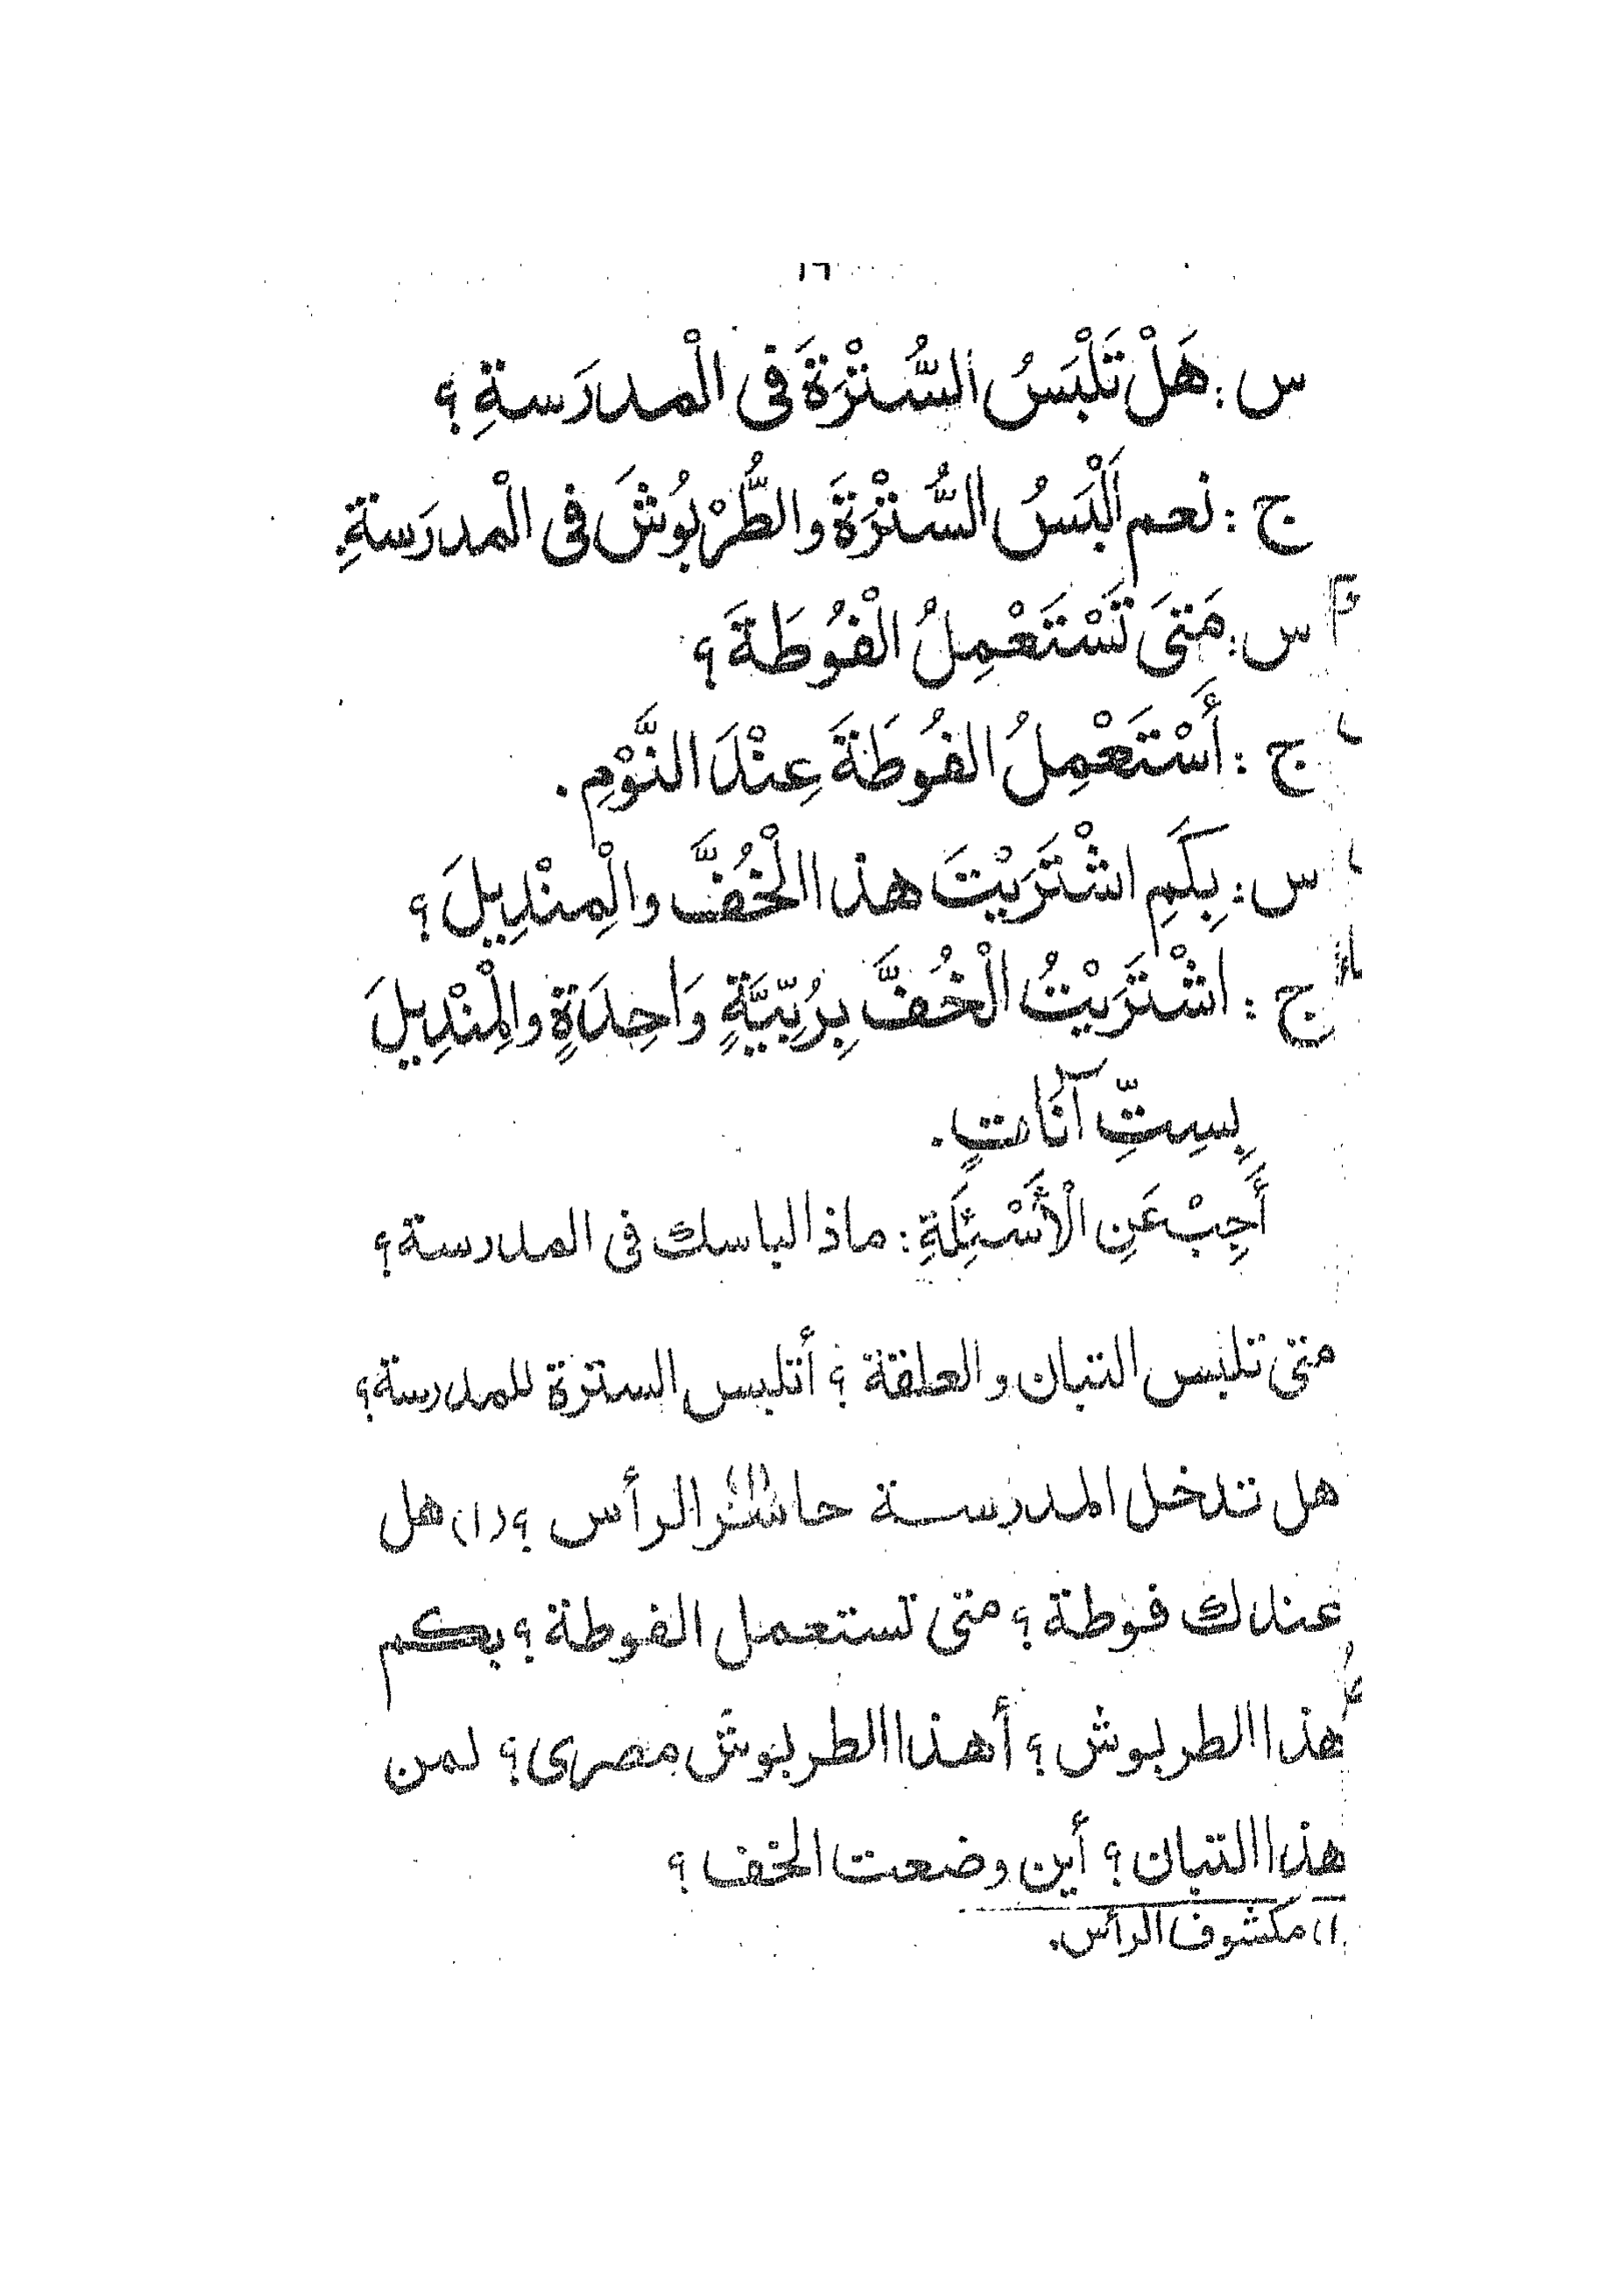 ١٦
س : هَلْ تَلْبَسُ السُّتْرَةَ فى الْمدرَسةِ ؟
ج : نعم اَلْبَسُ السُّتْرَةَ والطُّرْبُوْشَ فى الْمدرَسةِ.
س : مَتىَ تَسْتَعْمِلُ الْفُوُطَةَ ؟
ج : أَسْتَعْمِلُ الفُوطَةَ عِنْدَ النَّوْمِ .
س : بِكَمِ اشْتَرَيْتَ هذا الْخُفَّ والْمِنْدِيلَ ؟
ج : اشْتَرَيْتُ الْخُفَّ بِرُبِّيَّةٍ وَاحِدَةٍ والْمِنْدِيلَ
بِسِتِّ آنَاتٍ .
أَجِبْ عَنِ الْأَسْئِلَةِ : ماذا لباسك فى المدرسة ؟
متى تلبس التبان والعلقة ؟ أتلبس السترة للمدرسة ؟
هل تدخل المدرسة الرأس ؟ (١) هل
عندك فوطة ؟ متى تستعمل الفوطة ؟ بكم
هذا الطربوش ؟ أهذا الطربوش مصرى ؟ لمن
هذا التبان ؟ أين وضعت الخف ؟
(١) مكشوف الرأس.